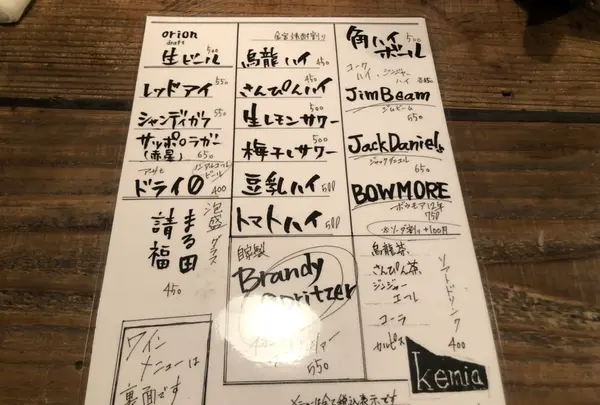 orion
draft
生ビール 500
レッドアイ 550
シャンディガフ 550
サッポロラガー
(赤星) 650
アサヒ ノンアルコールビール
ドライ0 400
泡盛 グラス
まる田
請福
450
ワイン
メニューは
裏面です
烏龍ハイ 450
さんぴんハイ 450
生レモンサワー 500
梅干しサワー 500
豆乳ハイ 500
トマトハイ 500
自家製
Brandy
Spritzer
550
角ハイ 500
ボール
コーク
ハイ、ジンジャー
ハイ
JimBeam
ジムビーム
JackDaniel's
ジャックダニエル
650
BOWMORE
ボウモア12年
750
※ソーダ割り+100円
ソフトドリンク
400
烏龍茶、
さんぴん茶、
ジンジャー
エール
コーラ
カルピス
kemia
メニューは全て税込表示です